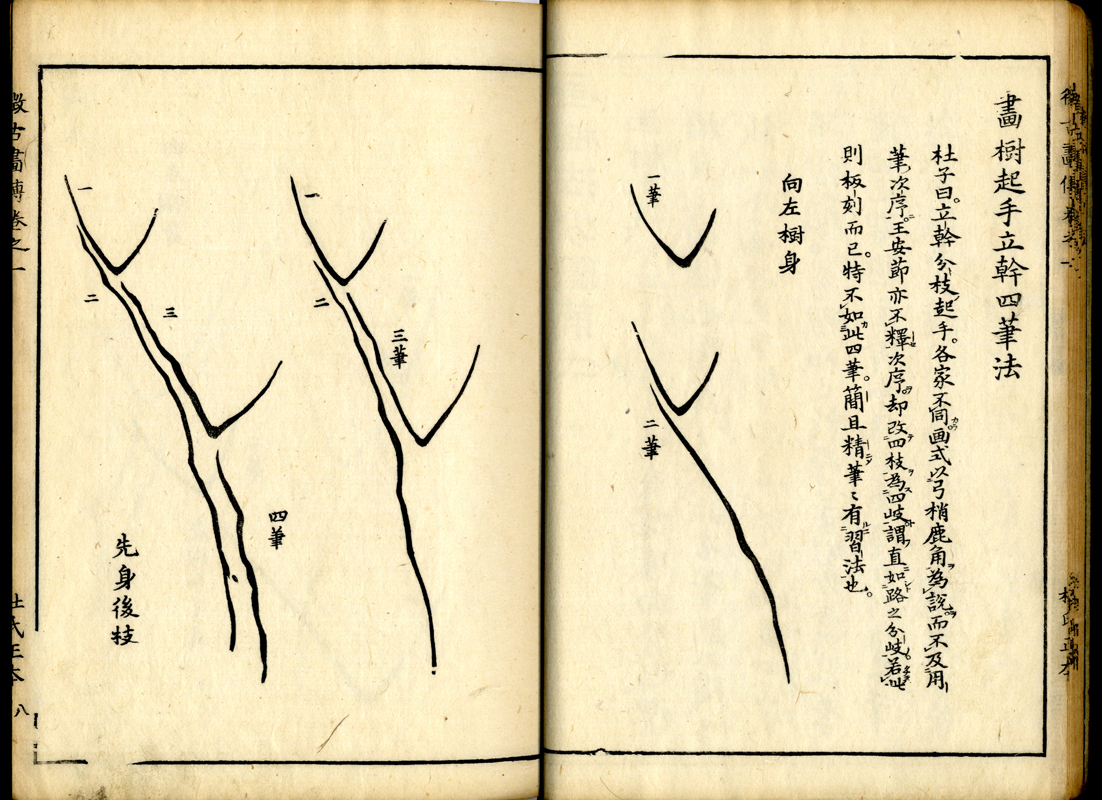 畫樹起手立幹四筆法
杜子曰。立幹分枝起手。各家不同画式以弓梢鹿角為說而不及用
筆次序。王安節亦不釋次序却改四枝為四岐謂直如路之分岐若此
則板刻而已。特不如此四筆。簡且精筆〻有習法也。
向左樹身
一筆
二筆
一
二
三筆
一
二
三
四筆
先身後枝
畫傳卷之一
杜氏正本
八